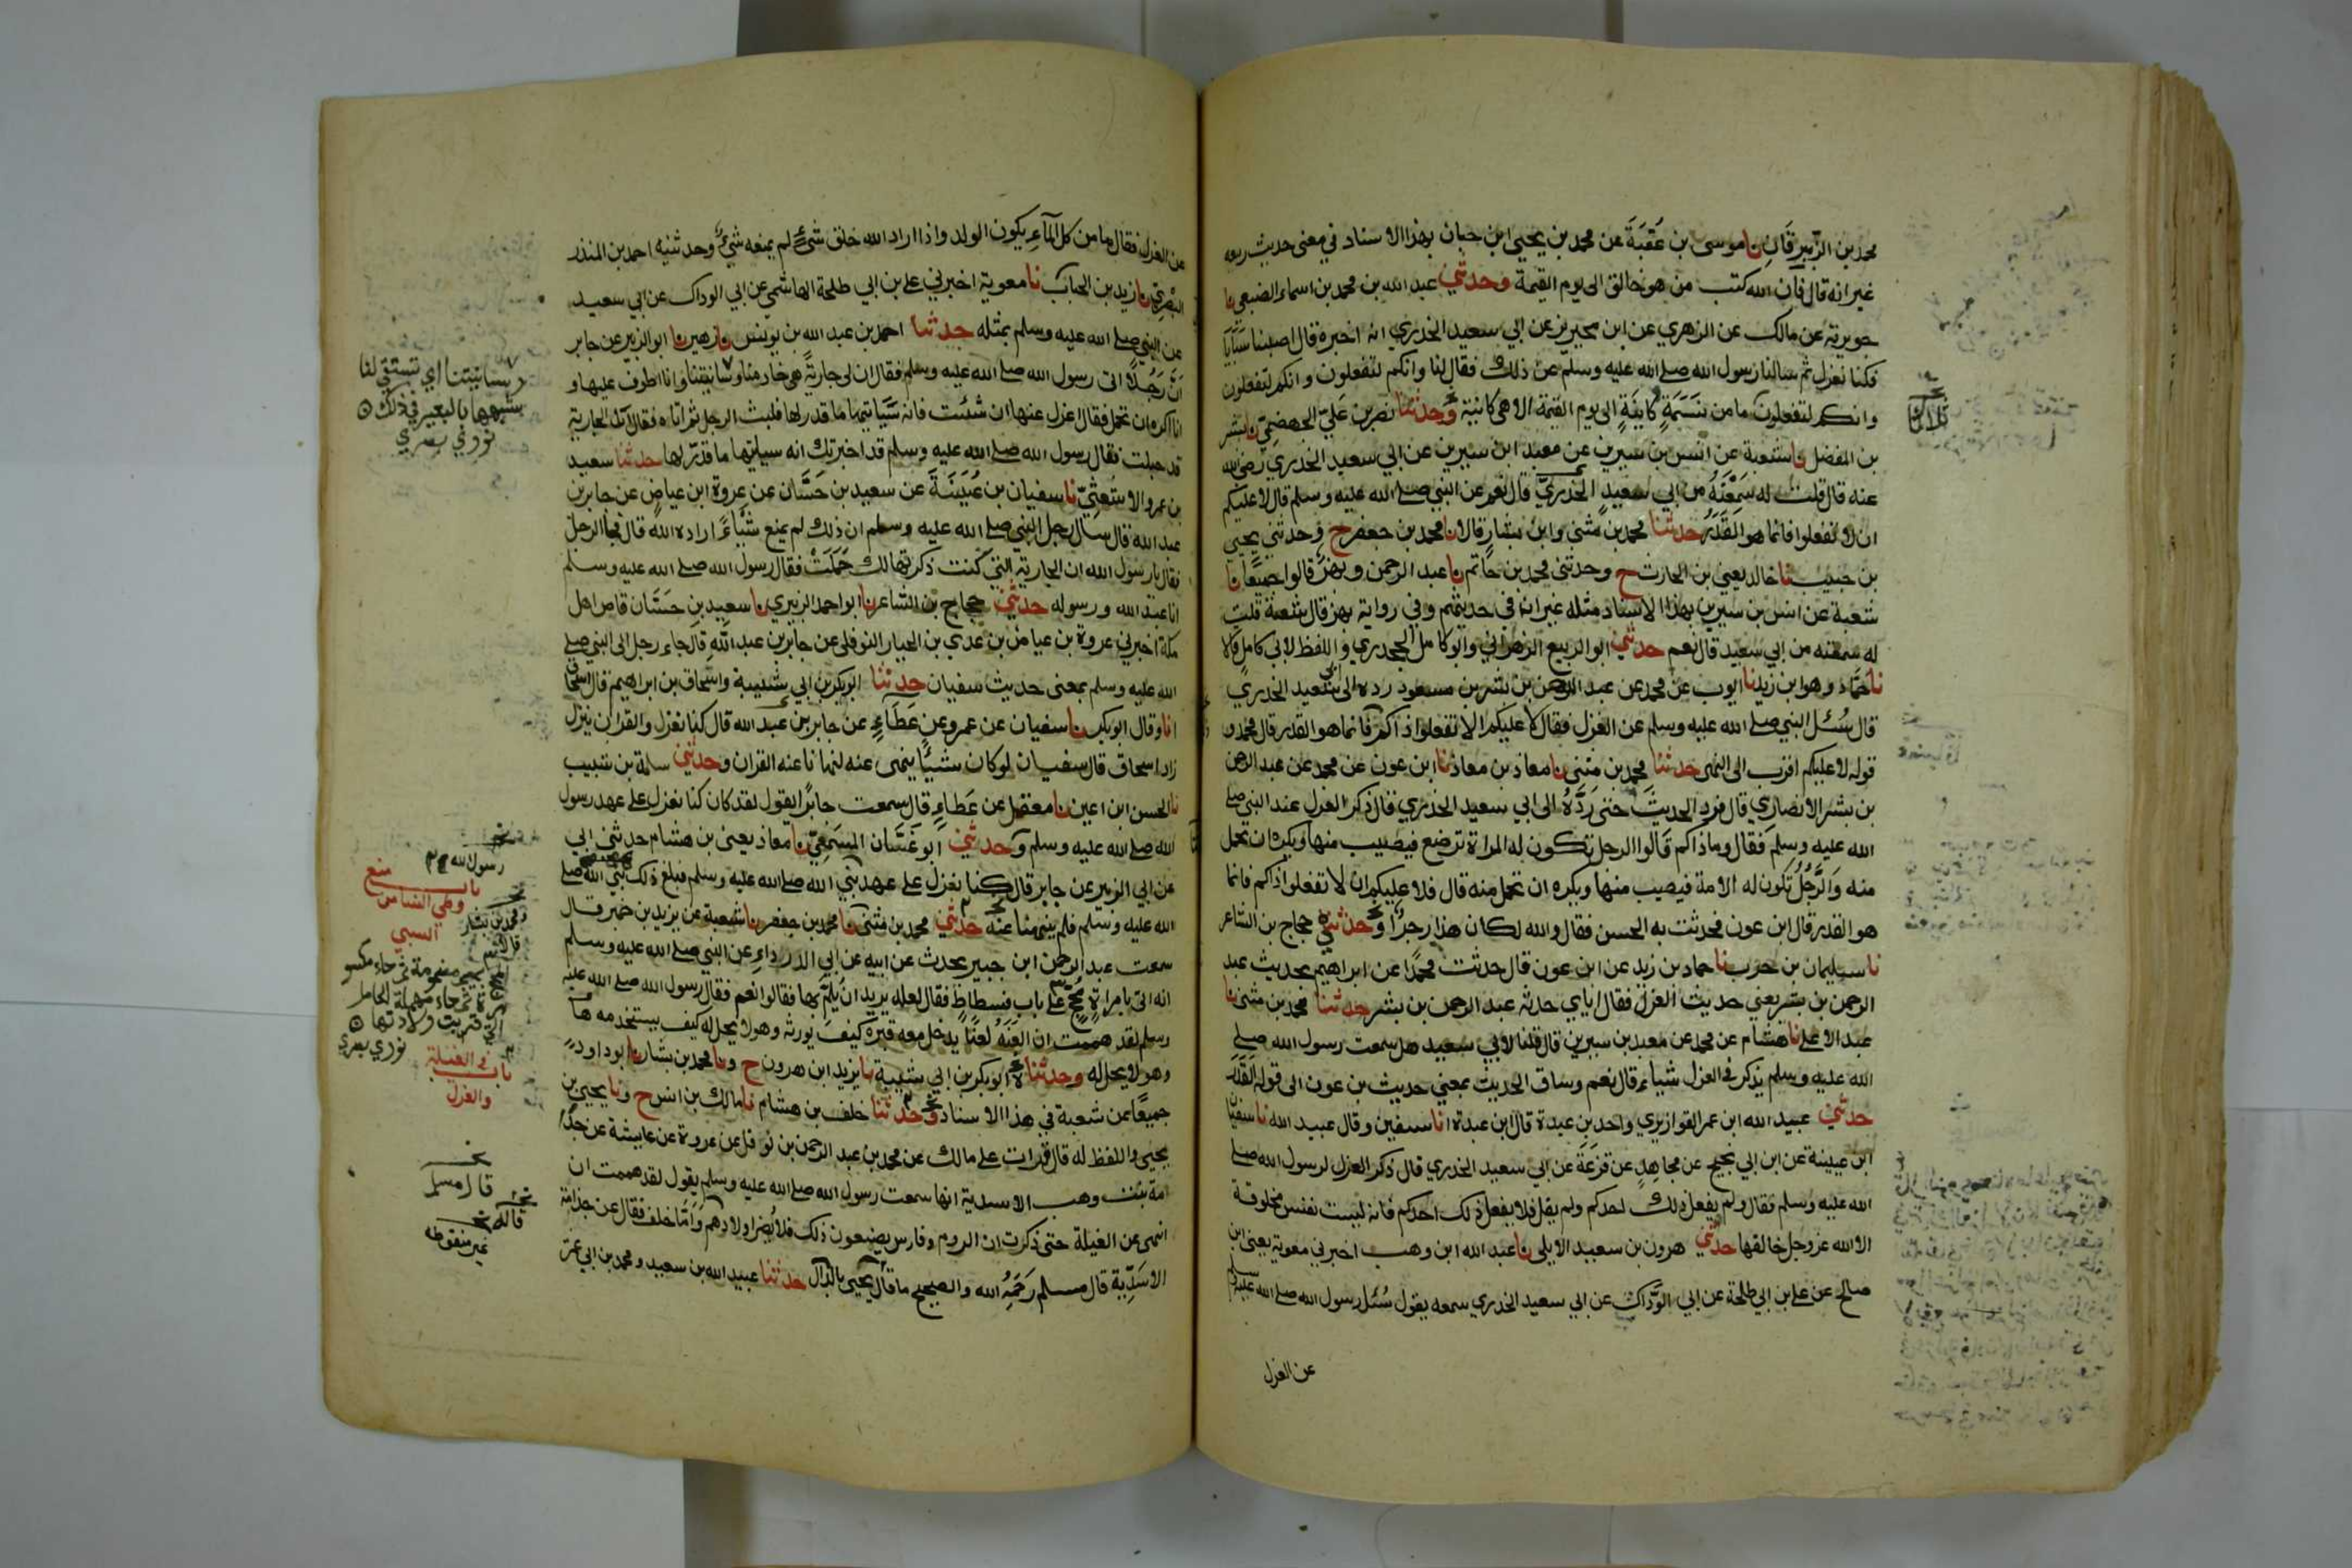 محمد بن الزبرقان نا موسى بن عقبة عن محمد بن يحيى ابن حبان بهذا الاسناد في معنى حديث ربيعه
غير انه قال فان الله كتب من هو خالق الى يوم القيمة وحدثني عبد الله بن محمد بن اسماء الضبعي نا
جويرية عن مالك عن الزهري عن ابن محيريز عن ابي سعيد الخدري انه اخبره قال اصبنا سبايا
فكنا نعزل ثم سالنا رسول الله صلى الله عليه وسلم عن ذلك فقال لنا وانكم لتفعلون وانكم لتفعلون
وانكم لتفعلون ما من نسمة كاينة الى يوم القيمة الا هي كاينة وحدثنا نصر بن علي الجهضمي نا بشر
بن المفضل نا شعبة عن انس بن سيرين عن معبد ابن سيرين عن ابي سعيد الخدري رضي الله
عنه قال قلت له سمعته من ابي سعيد الخدري قال نعم عن النبي صلى الله عليه وسلم قال لا عليكم
ان لا تفعلوا فانما هو القدر حدثنا محمد بن مثنى وابن بشار قالا نا محمد بن جعفر ح وحدثني يحيى
بن حبيب نا خالد يعني بن الحارث ح وحدثني محمد بن حاتم نا عبد الرحمن وبهز قالوا جميعا نا
شعبة عن انس بن سيرين بهذا الاسناد مثله غير ان في حديثهم وفي رواية بهز قال شعبة قلت
له سمعته من ابي سعيد قال نعم حدثني ابو الربيع الزهراني وابو كامل الجحدري واللفظ لابي كامل قالا
نا حماد وهو ابن زيد نا ايوب عن محمد عن عبد الرحمن بن بشر بن مسعود رده الى ابي سعيد الخدري
قال سئل النبي صلى الله عليه وسلم عن العزل فقال لا عليكم الا تفعلوا ذاكم فانما هو القدر قال محمد و
قوله لا عليكم اقرب الى النهى حدثنا محمد بن مثنى نا معاذ بن معاذ نا ابن عون عن محمد عن عبد الرحمن
بن بشر الانصاري قال فرد الحديث حتى رده الى ابي سعيد الخدري قال ذكر العزل عند النبي صلى
الله عليه وسلم فقال وما ذاكم قالوا الرجل تكون له المراة ترضع فيصيب منها ويكره ان تحمل
منه والرجل تكون له الامة فيصيب منها ويكره ان تحمل منه قال فلا عليكم ان لا تفعلوا ذاكم فانما
هو القدر قال ابن عون فحدثت به الحسن فقال والله لكان هذا زجرا وحدثني حجاج بن الشاعر
نا سليمان بن حرب نا حماد بن زيد عن ابن عون قال حدثت محمدا عن ابراهيم بحديث عبد
الرحمن بن بشر يعني حديث العزل فقال اياي حدثه عبد الرحمن بن بشر حدثنا محمد بن مثنى نا
عبد الاعلى نا هشام عن محمد عن معبد بن سيرين قال قلنا لابي سعيد هل سمعت رسول الله صلى
الله عليه وسلم يذكر في العزل شياء قال نعم وساق الحديث بمعنى حديث بن عون الى قوله القدر
حدثني عبيد الله ابن عمر القواريري واحمد بن عبدة قال ابن عبدة انا سفين وقال عبيد الله نا سفين
ابن عيينة عن ابن ابي نجيح عن مجاهد عن قزعة عن ابي سعيد الخدري قال ذكر العزل لرسول الله صلى
الله عليه وسلم فقال ولم يفعل ذلك احدكم ولم يقل فلا يفعل ذلك احدكم فانه ليست نفس مخلوقة
الا الله عز وجل خالقها حدثني هرون بن سعيد الايلي نا عبد الله ابن وهب اخبرني معوية يعني ابن
صالح عن علي بن ابي طلحة عن ابي الوداك عن ابي سعيد الخدري سمعه يقول سئل رسول الله صلى الله عليه وسلم
عن العزل
ثلاثا
عن العزل فقال ما من كل المآء يكون الولد واذا اراد الله خلق شئ لم يمنعه شئ وحدثنيه احمد بن المنذر
البصري نا زيد بن الحباب نا معوية اخبرني علي بن ابي طلحة الهاشمي عن ابي الوداك عن ابي سعيد
عن النبي صلى الله عليه وسلم بمثله حدثنا احمد بن عبد الله بن يونس نا زهير نا ابو الزبير عن جابر
ان رجلا اتى رسول الله صلى الله عليه وسلم فقال ان لي جارية هي خادمنا وسانيتنا وانا اطوف عليها و
انا اكره ان تحمل فقال اعزل عنها ان شئت فانه سياتيها ما قدر لها فلبث الرجل ثم اتاه فقال ان الجارية
قد حبلت فقال رسول الله صلى الله عليه وسلم قد اخبرتك انه سياتيها ما قدر لها حدثنا سعيد
بن عمرو الاشعثي نا سفيان بن عيينة عن سعيد بن حسان عن عروة ابن عياض عن جابر بن
عبد الله قال سال رجل النبي صلى الله عليه وسلم ان ذلك لم يمنع شياء اراده الله قال فجا الرجل
فقال يا رسول الله ان الجارية التي كنت ذكرتها لك حملت فقال رسول الله صلى الله عليه وسلم
انا عبد الله ورسوله حدثني حجاج بن الشاعر نا ابو احمد الزبيري نا سعيد بن حسان قاص اهل
مكة اخبرني عروة بن عياض بن عدي بن الخيار النوفلي عن جابر بن عبد الله قال جاء رجل الى النبي صلى
الله عليه وسلم بمعنى حديث سفيان حدثنا ابو بكر بن ابي شيبة واسحاق بن ابراهيم قال اسحاق
انا وقال ابو بكر نا سفيان عن عمرو عن عطاء عن جابر بن عبد الله قال كنا نعزل والقران ينزل
زاد اسحاق قال سفيان لو كان شيئا ينهى عنه لنهانا عنه القران وحدثني سلمة بن شبيب
نا الحسن ابن اعين نا معقل عن عطاء قال سمعت جابرا يقول لقد كان كنا نعزل على عهد رسول
الله صلى الله عليه وسلم وحدثني ابو غسان المسمعي نا معاذ يعني بن هشام حدثني ابي
عن ابي الزبير عن جابر قال كنا نعزل على عهد نبي الله صلى الله عليه وسلم فبلغ ذلك نبي الله صلى
الله عليه وسلم فلم ينهنا عنه حدثني محمد بن مثنى نا محمد بن جعفر نا شعبة عن يزيد بن خمير قال
سمعت عبد الرحمن ابن جبير يحدث عن ابيه عن ابي الدرداء عن النبي صلى الله عليه وسلم
انه اتى بامراة مجح على باب فسطاط فقال لعله يريد ان يلم بها فقالوا نعم فقال رسول الله صلى الله عليه
وسلم لقد هممت ان العنه لعنا يدخل معه قبره كيف يورثه وهو لا يحل له كيف يستخدمه
وهو لا يحل له وحدثنا ابو بكر بن ابي شيبة نا يزيد ابن هرون ح ونا محمد بن بشار نا ابو داود
جميعا عن شعبة في هذا الاسناد وحدثنا خلف بن هشام نا مالك بن انس ح ونا يحيى بن
يحيى واللفظ له قال قرات على مالك عن محمد بن عبد الرحمن بن نوفل عن عروة عن عايشة عن جدا
مة بنت وهب الاسدية انها سمعت رسول الله صلى الله عليه وسلم يقول لقد هممت ان
انهى عن الغيلة حتى ذكرت ان الروم وفارس يصنعون ذلك فلا يضر اولادهم واما خلف فقال عن جذامة
الاسدية قال مسلم رحمه الله والصحيح ما قال يحيى بالدال حدثنا عبيد الله بن سعيد ومحمد بن ابي عمر
وسانيتنا اي تستقي لنا
شبهها بالبعير في ذلك
نووي بصري
رسول الله
باب منع
وطي الحامل من
السبي
ومحمد بن بشار
قالا
بجيم مضمومة ثم حاء مكسو
رة ثم حاء مهملة الحامل
التي قربت ولادتها
نووي بصري
باب في الغيلة
والعزل
قال مسلم
قاله
غير منقوطه